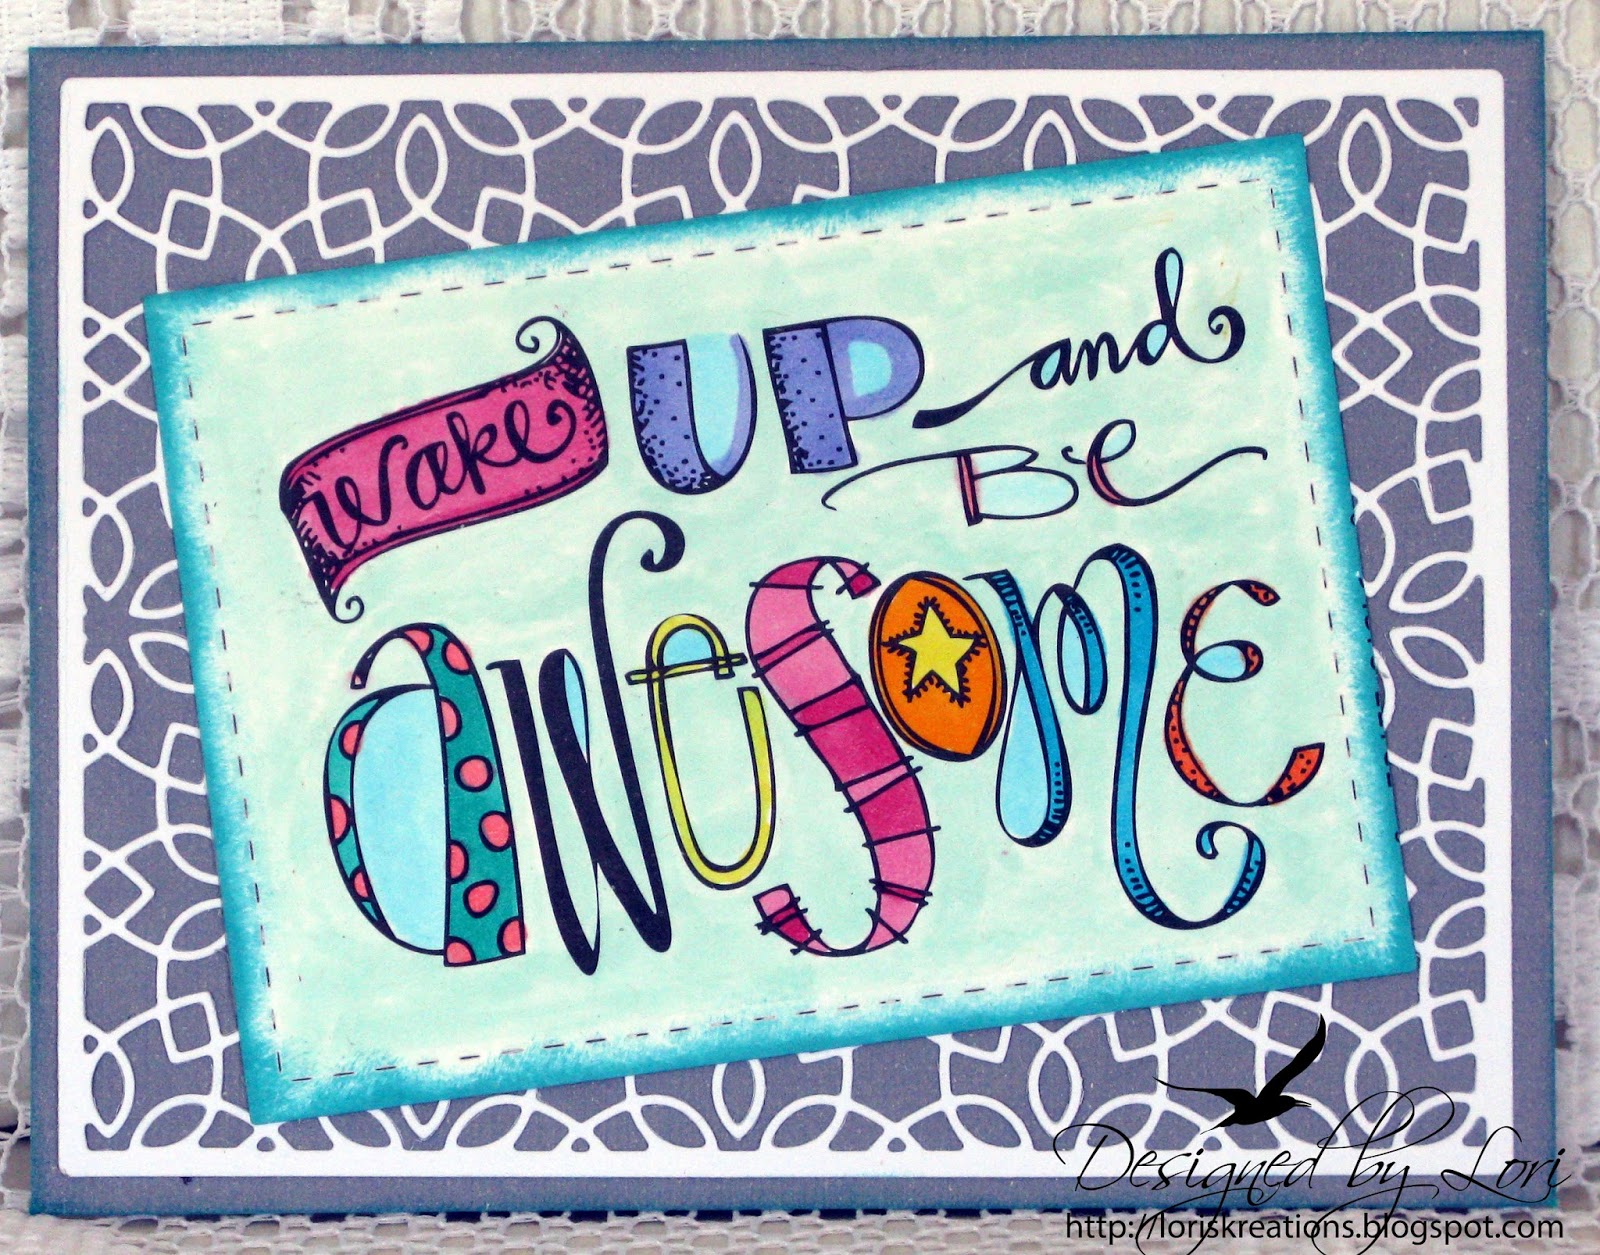 wake UP and
Be
awesome
Designed by Lori
http://loriskreations.blogspot.com